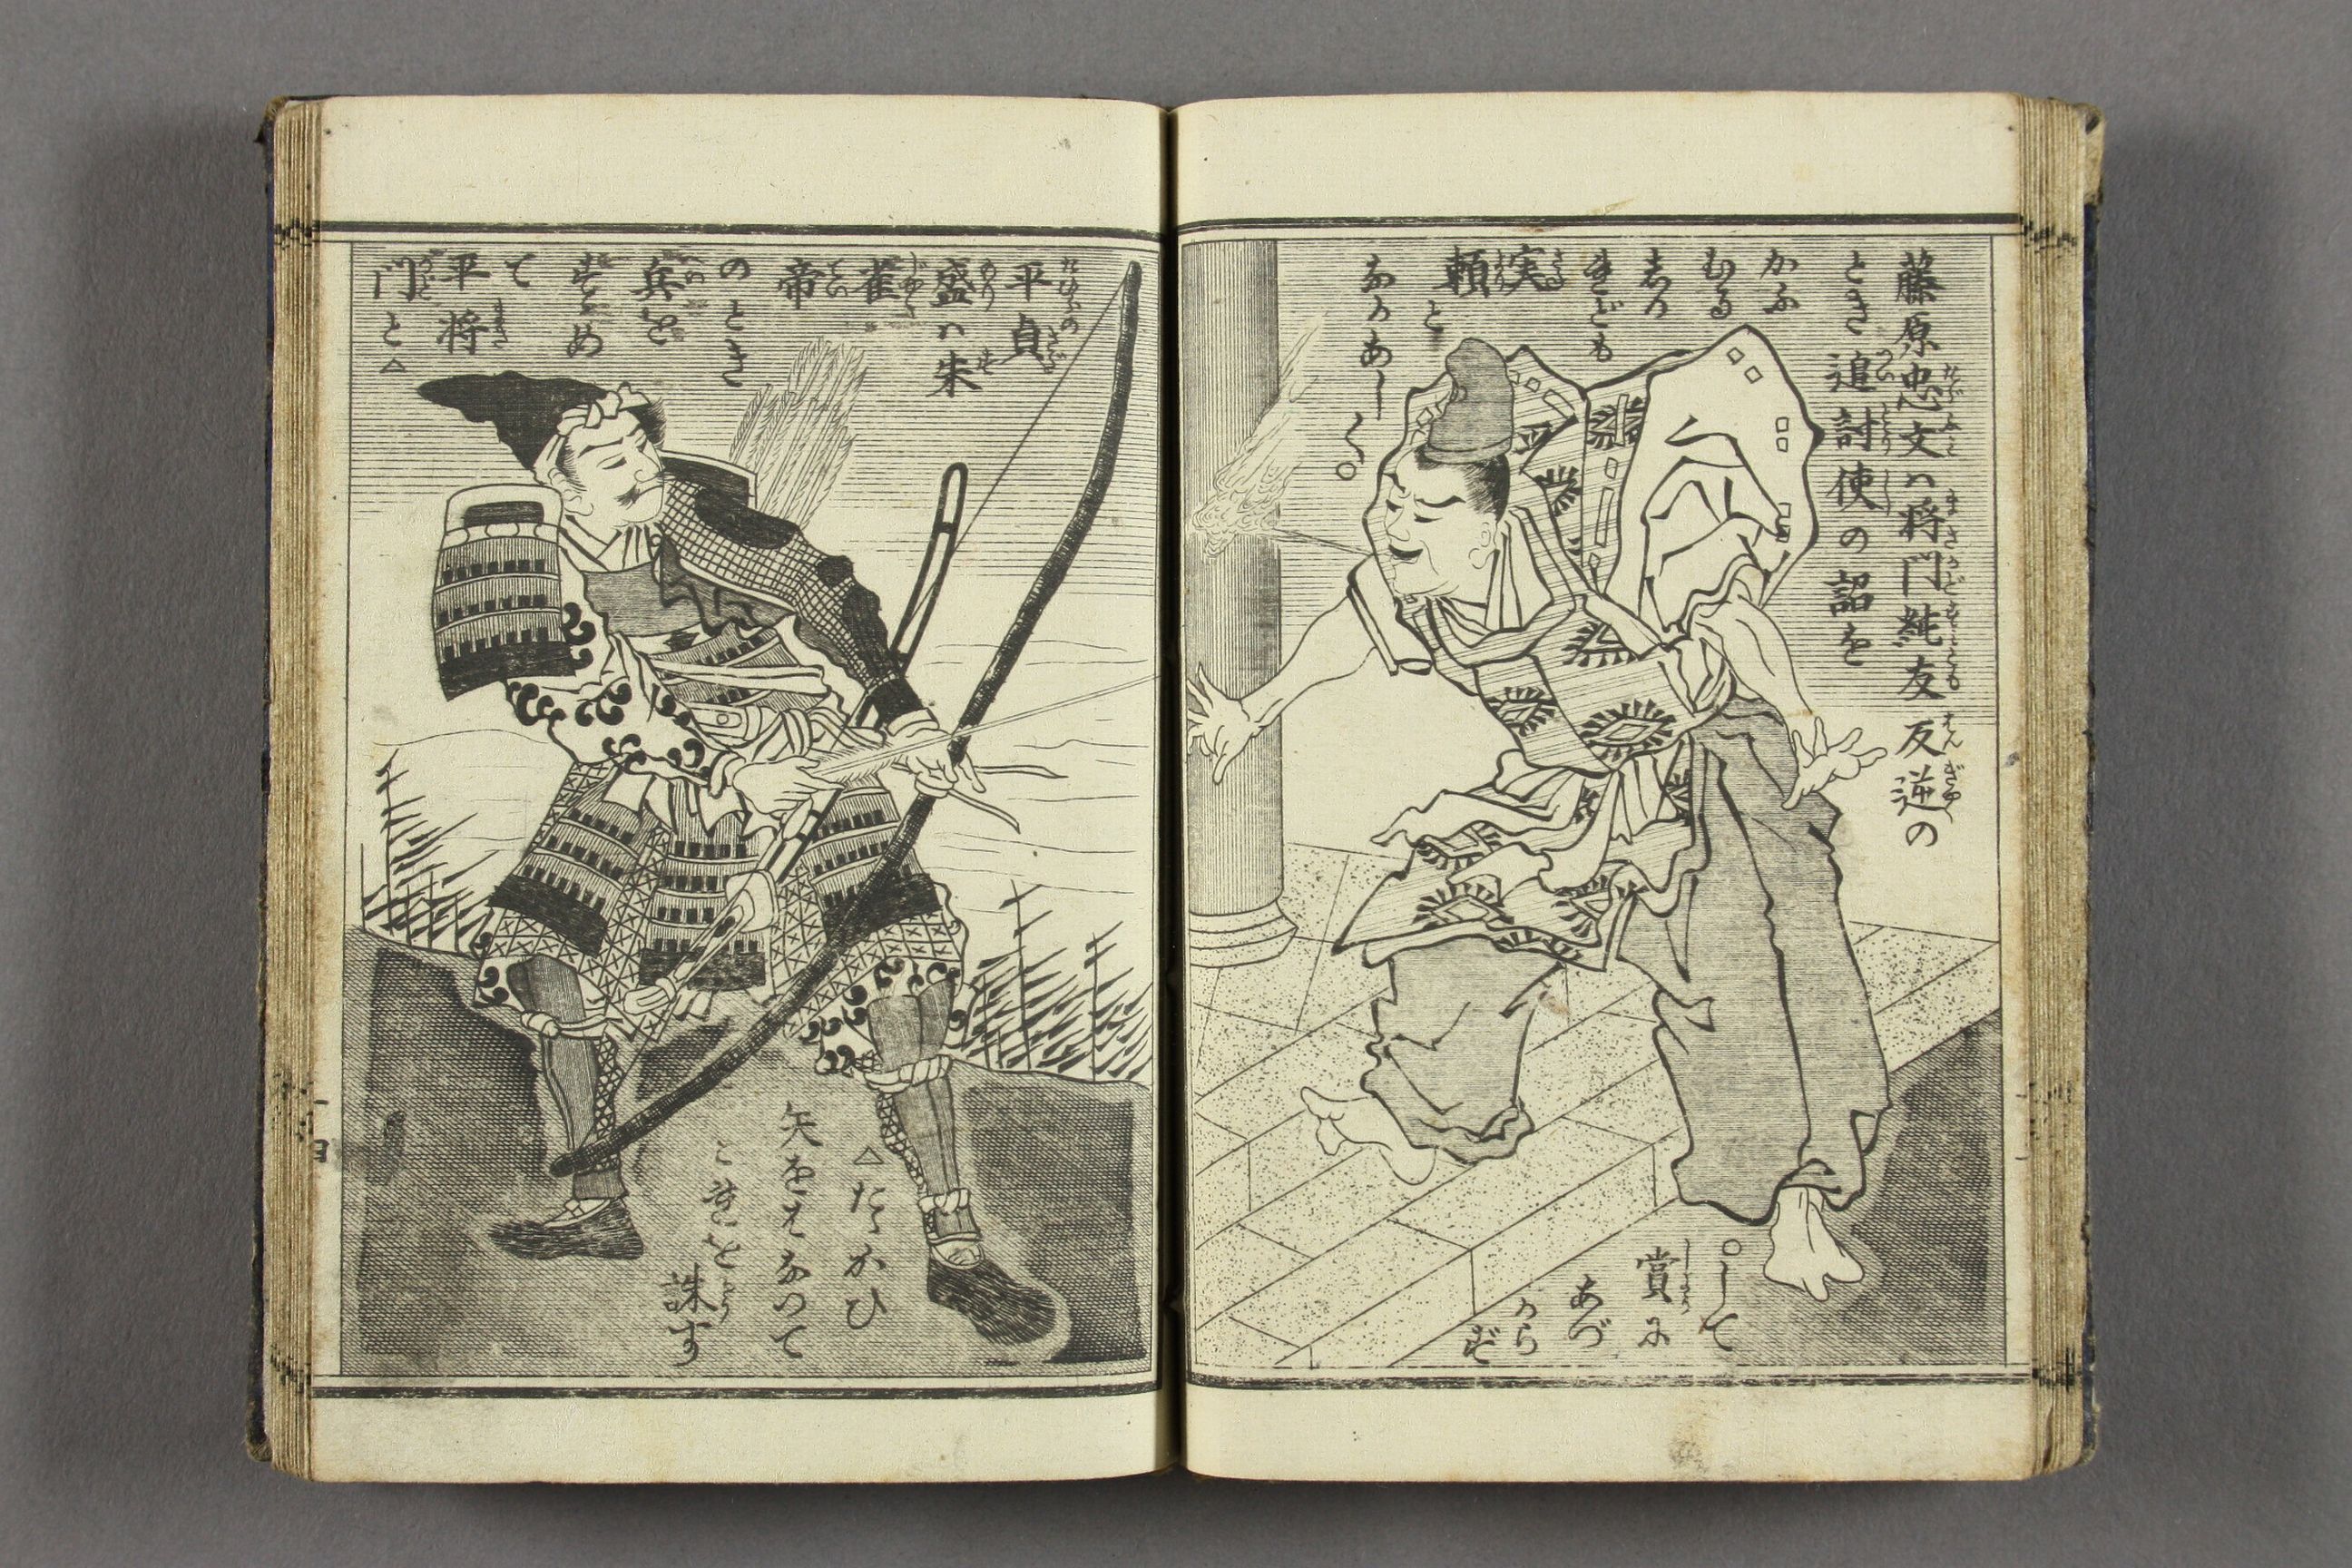 藤原忠文ハ将門純友反逆の
とき追討使の詔を
かふ
むる
志か
れども
実
頼と
なかあし
く〇
〇して
賞に
あづ
から
ず
平貞
盛ハ朱
雀
帝
のとき
兵を
すゝめ
て
平将
門と△
△たゝかひ
矢をはなつて
これを
誅す